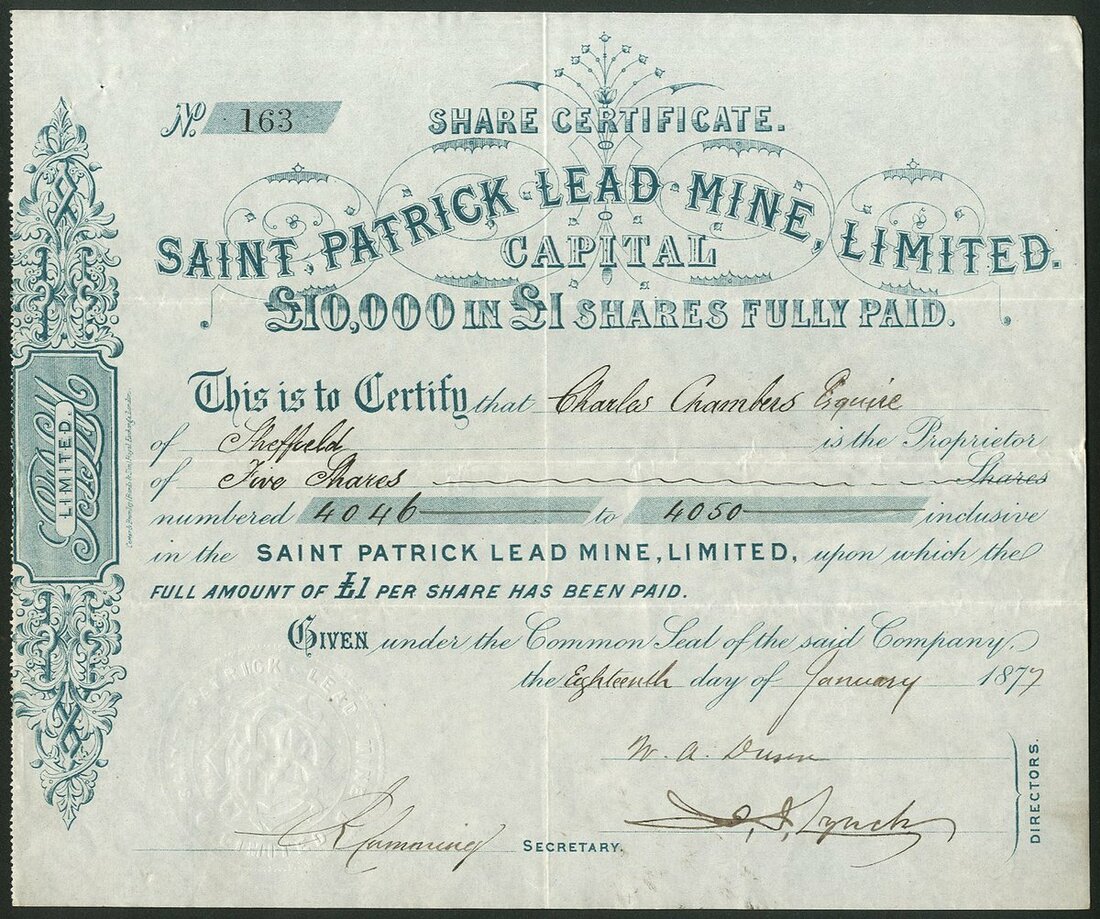 No. 163
SHARE CERTIFICATE.
SAINT PATRICK LEAD MINE, LIMITED.
CAPITAL
£10,000 IN £1 SHARES FULLY PAID.
This is to Certify that Charles Chambers Esquire
of Sheffield is the Proprietor
of Five Shares Shares
numbered 4046 to 4050 inclusive
in the SAINT PATRICK LEAD MINE, LIMITED, upon which the
FULL AMOUNT OF £1 PER SHARE HAS BEEN PAID.
GIVEN under the Common Seal of the said Company,
the Eighteenth day of January 1877
PATRICK LEAD MINE
LIMITED
W. A.
Lynch
DIRECTORS.
SECRETARY.
LIMITED